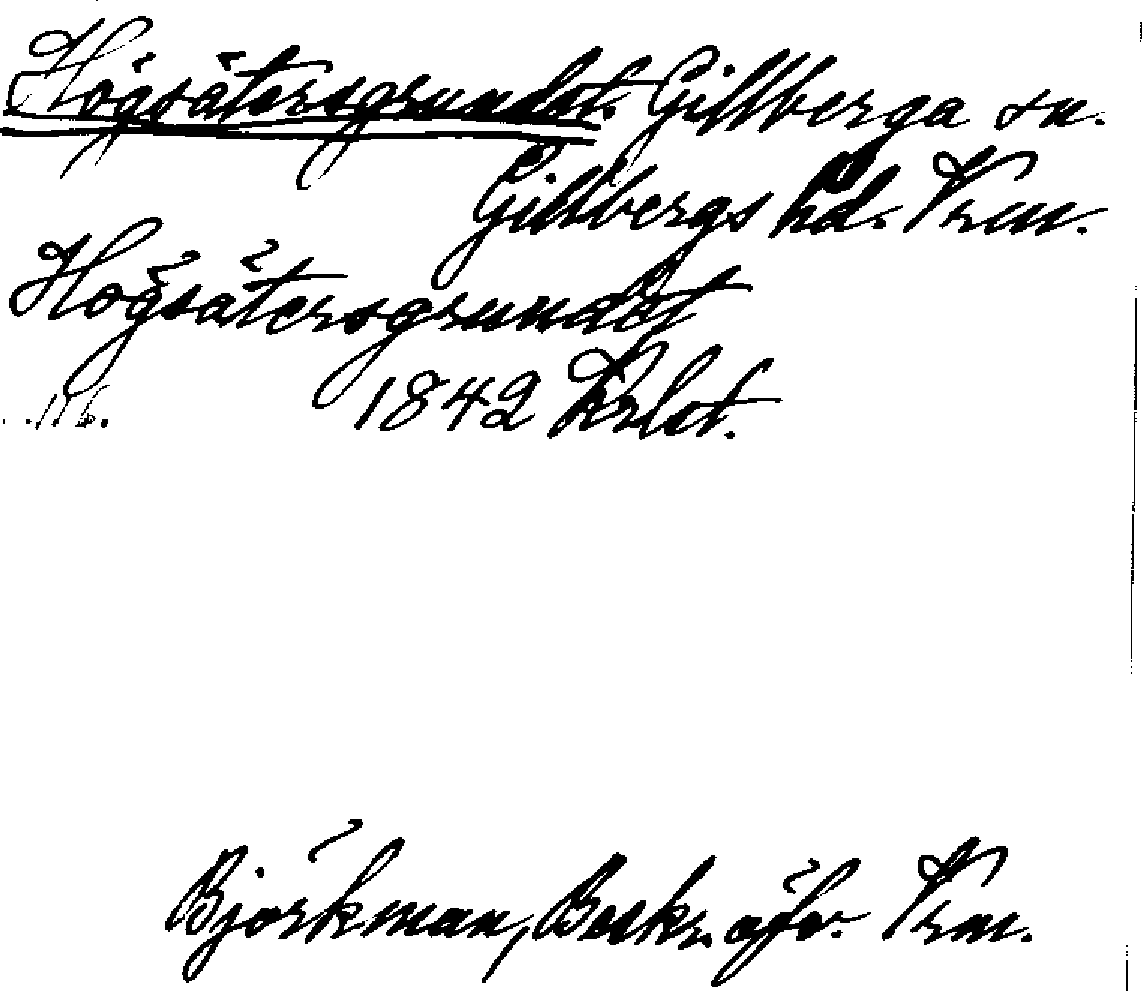 Högsätersgrundet. Gillberga sn.
Gillbergs hd. Vrm.
Högsätersgrundet
1842 Krlst.
Björkman, Beskr. öfv. Vrm.